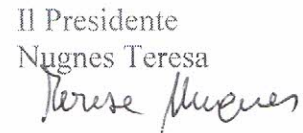 Il Presidente
Nugnes Teresa
Terese Nugnes